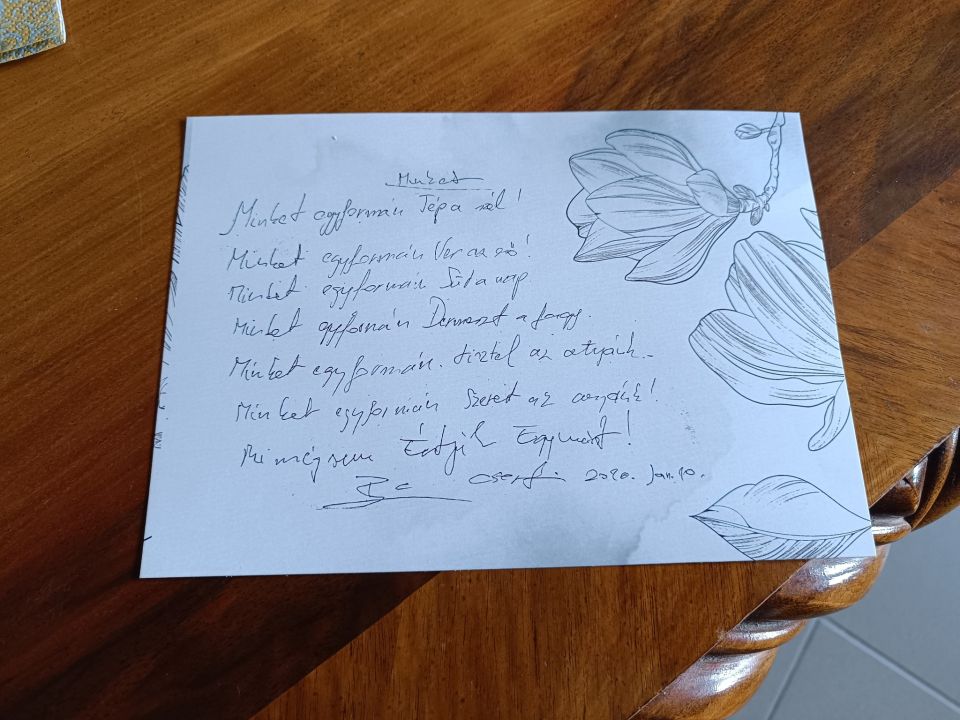 Minket
Minket egyformán Tép a szél!
Minket egyformán Ver az eső!
Minket egyformán Süt a nap
Minket egyformán Dermeszt a fagy.
Minket egyformán tisztel az
Minket egyformán Szeret az anyánk!
Mi mégsem Értjük Egymást!
2020. Jan. 10.